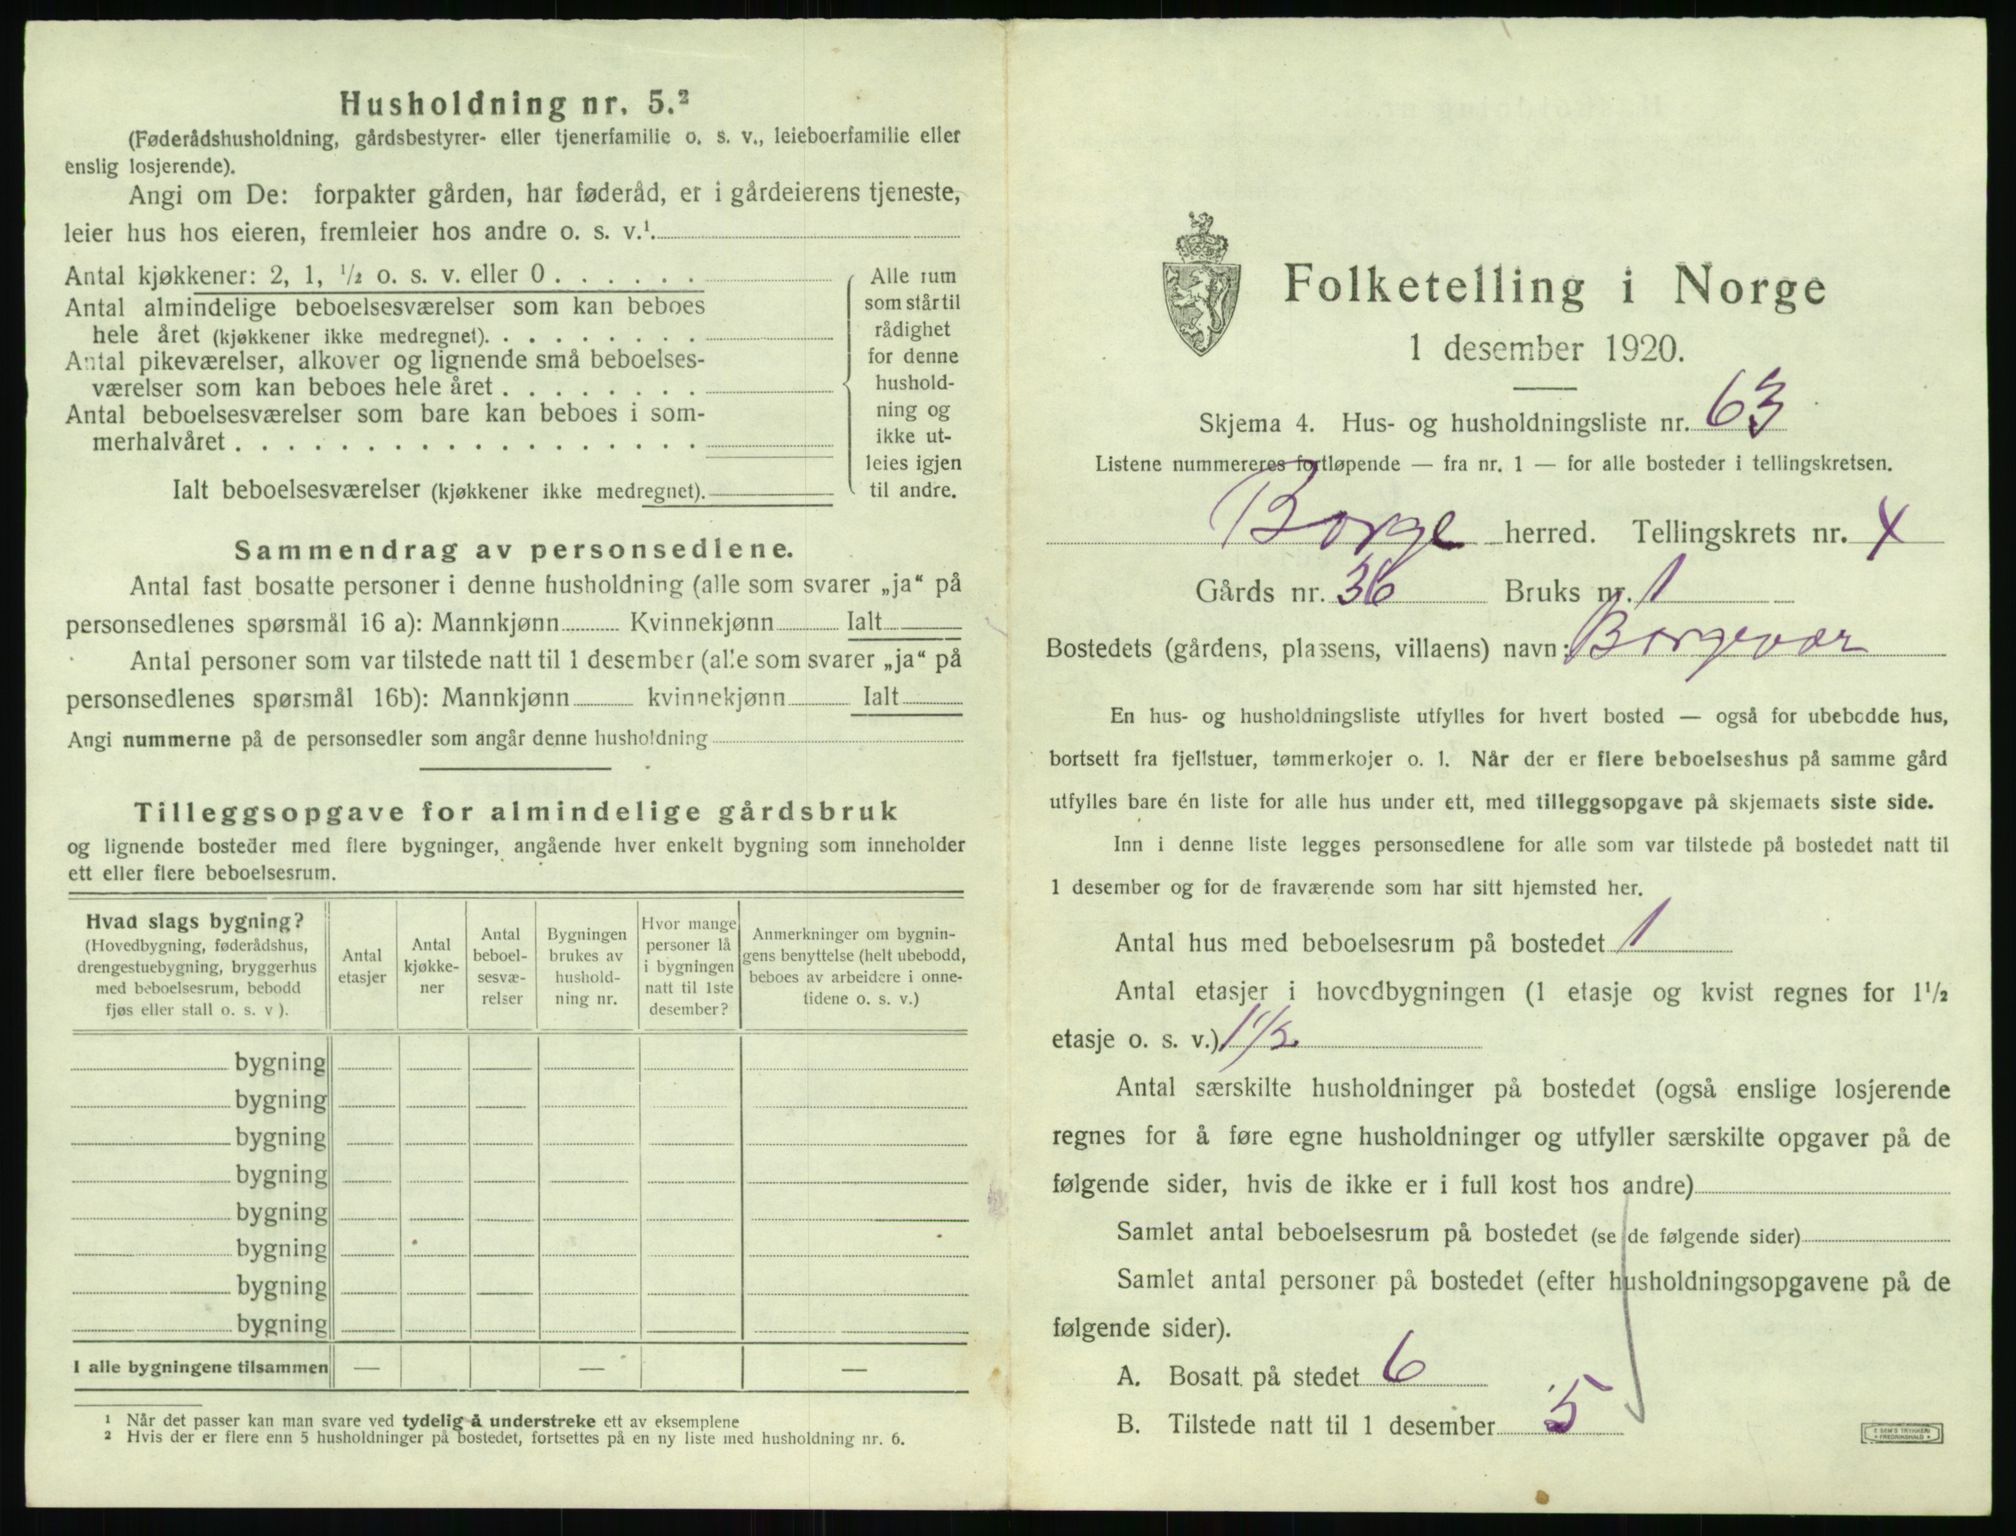 Husholdning nr. 5.²
(Føderådshusholdning, gårdsbestyrer- eller tjenerfamilie o. s. v., leieboerfamilie eller
enslig losjerende).
Angi om De: forpakter gården, har føderåd, er i gårdeierens tjeneste,
leier hus hos eieren, fremleier hos andre o. s. v.¹.
Antal kjøkkener: 2, 1, ½ o. s. v. eller 0 . . . . . .
Antal almindelige beboelsesværelser som kan beboes
hele året (kjøkkener ikke medregnet). . . . . . . . .
Antal pikeværelser, alkover og lignende små beboelses-
værelser som kan beboes hele året . . . . . . . .
Antal beboelsesværelser som bare kan beboes i som-
merhalvåret . . . . . . . . . . . . . . . . . .
Ialt beboelsesværelser (kjøkkener ikke medregnet).
Alle rum
som står til
rådighet
for denne
hushold-
ning og
ikke ut-
leies igjen
til andre.
Sammendrag av personsedlene.
Antal fast bosatte personer i denne husholdning (alle som svarer „ja“ på
personsedlenes spørsmål 16 a): Mannkjønn Kvinnekjønn Ialt
Antal personer som var tilstede natt til 1 desember (alle som svarer „ja“ på
personsedlenes spørsmål 16b): Mannkjønn kvinnekjønn Ialt
Angi nummerne på de personsedler som angår denne husholdning
Tilleggsopgave for almindelige gårdsbruk
og lignende bosteder med flere bygninger, angående hver enkelt bygning som inneholder
ett eller flere beboelsesrum.
Hvad slags bygning?
(Hovedbygning, føderådshus,
drengestuebygning, bryggerhus
med beboelsesrum, bebodd
fjøs eller stall o. s. v ).
Antal
etasjer
Antal
kjøkke-
ner
Antal
beboel-
sesvæ-
relser
Bygningen
brukes av
hushold-
ning nr.
Hvor mange
personer lå
i bygningen
natt til 1ste
desember?
Anmerkninger om bygnin-
gens benyttelse (helt ubebodd,
beboes av arbeidere i onne-
tidene o. s. v.)
bygning
bygning
bygning
bygning
bygning
bygning
bygning
bygning
I alle bygningene tilsammen — — —
¹ Når det passer kan man svare ved tydelig å understreke ett av eksemplene
² Hvis der er flere enn 5 husholdninger på bostedet, fortsettes på en ny liste med husholdning nr. 6.
Folketelling i Norge
1 desember 1920.
Skjema 4. Hus- og husholdningsliste nr. 63
Listene nummereres fortløpende — fra nr. 1 — for alle bosteder i tellingskretsen.
Borge herred. Tellingskrets nr. X
Gårds nr. 36 Bruks nr. 1
Bostedets (gårdens, plassens, villaens) navn: Borgevær
En hus- og husholdningsliste utfylles for hvert bosted — også for ubebodde hus,
bortsett fra fjellstuer, tømmerkojer o. l. Når der er flere beboelseshus på samme gård
utfylles bare én liste for alle hus under ett, med tilleggsopgave på skjemaets siste side.
Inn i denne liste legges personsedlene for alle som var tilstede på bostedet natt til
1 desember og for de fraværende som har sitt hjemsted her.
Antal hus med beboelsesrum på bostedet 1
Antal etasjer i hovedbygningen (1 etasje og kvist regnes for 1½
etasje o. s. v.) 1 1/2
Antal særskilte husholdninger på bostedet (også enslige losjerende
regnes for å føre egne husholdninger og utfyller særskilte opgaver på de
følgende sider, hvis de ikke er i full kost hos andre)
Samlet antal beboelsesrum på bostedet (se de følgende sider)
Samlet antal personer på bostedet (efter husholdningsopgavene på de
følgende sider).
A. Bosatt på stedet 6
B. Tilstede natt til 1 desember 5